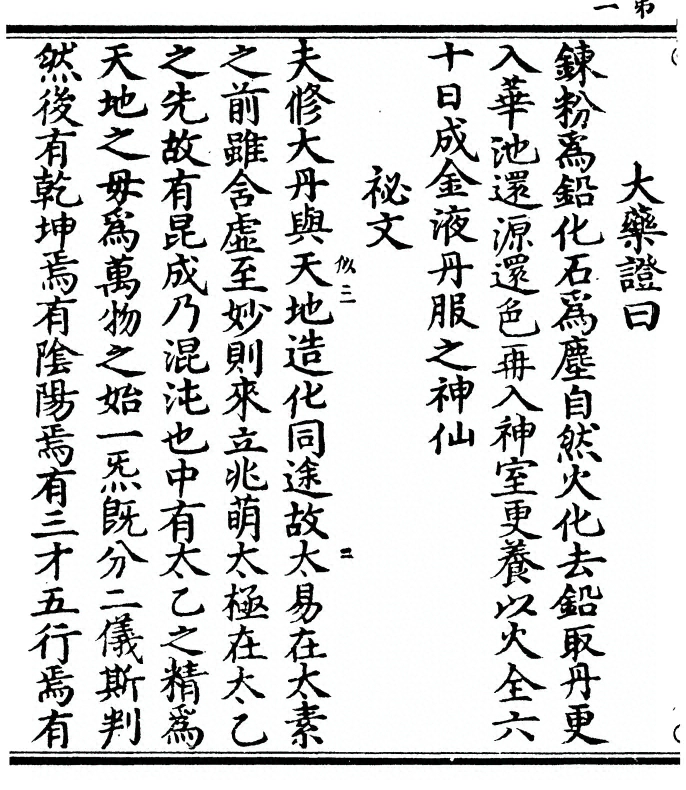 第一
大藥證曰
鍊粉爲鉛化石爲塵自然火化去鉛取丹更
入華池還源還色再入神室更養以火全六
十日成金液丹服之神仙
祕文
似三
二
夫修大丹與天地造化同途故太易在太素
之前雖含虛至妙則來立兆萌太極在太乙
之先故有昆成乃混沌也中有太乙之精爲
天地之毋爲萬物之始一炁旣分二儀斯判
然後有乾坤焉有陰陽焉有三才五行焉有